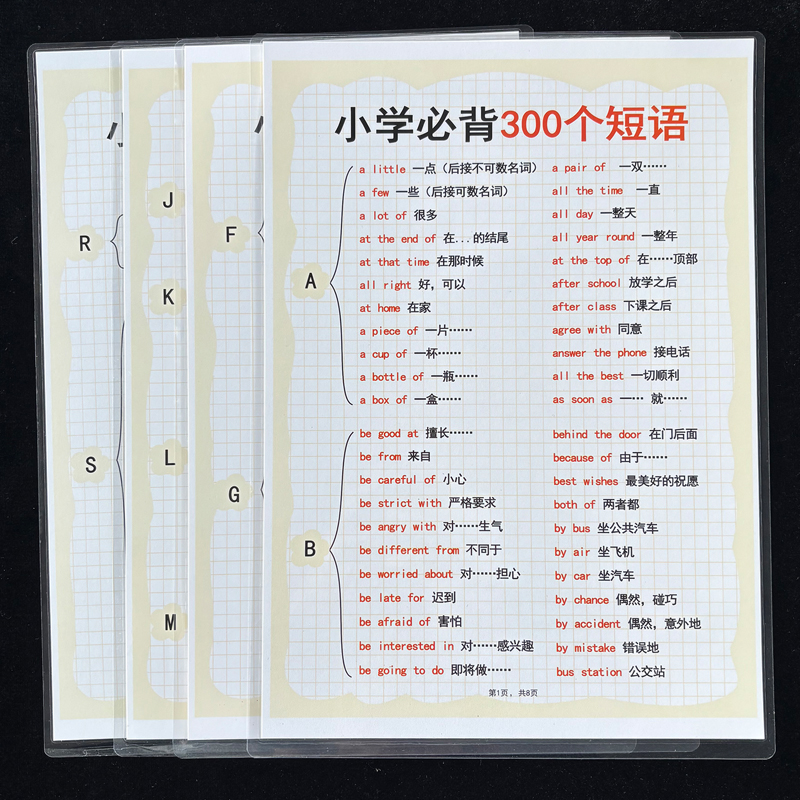 小学必背300个短语
A
a little 一点（后接不可数名词）
a few 一些（后接可数名词）
a lot of 很多
at the end of 在...的结尾
at that time 在那时候
all right 好，可以
at home 在家
a piece of 一片……
a cup of 一杯……
a bottle of 一瓶……
a box of 一盒……
a pair of 一双……
all the time 一直
all day 一整天
all year round 一整年
at the top of 在……顶部
after school 放学之后
after class 下课之后
agree with 同意
answer the phone 接电话
all the best 一切顺利
as soon as 一… 就……
B
be good at 擅长……
be from 来自
be careful of 小心
be strict with 严格要求
be angry with 对……生气
be different from 不同于
be worried about 对……担心
be late for 迟到
be afraid of 害怕
be interested in 对……感兴趣
be going to do 即将做……
behind the door 在门后面
because of 由于……
best wishes 最美好的祝愿
both of 两者都
by bus 坐公共汽车
by air 坐飞机
by car 坐汽车
by chance 偶然，碰巧
by accident 偶然，意外地
by mistake 错误地
bus station 公交站
第1页，共8页
F
G
J
K
L
M
R
S